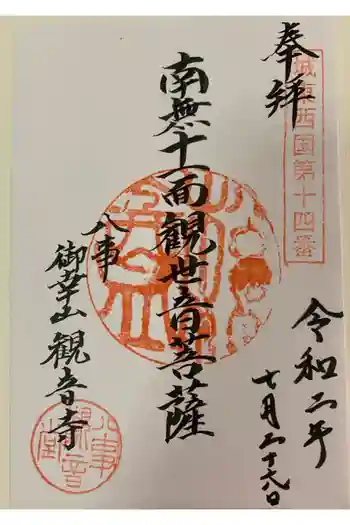 奉拝
城東西国第十四番
令和二年
七月二十六日
南無十一面観世音菩薩
八事
御幸山 観音寺